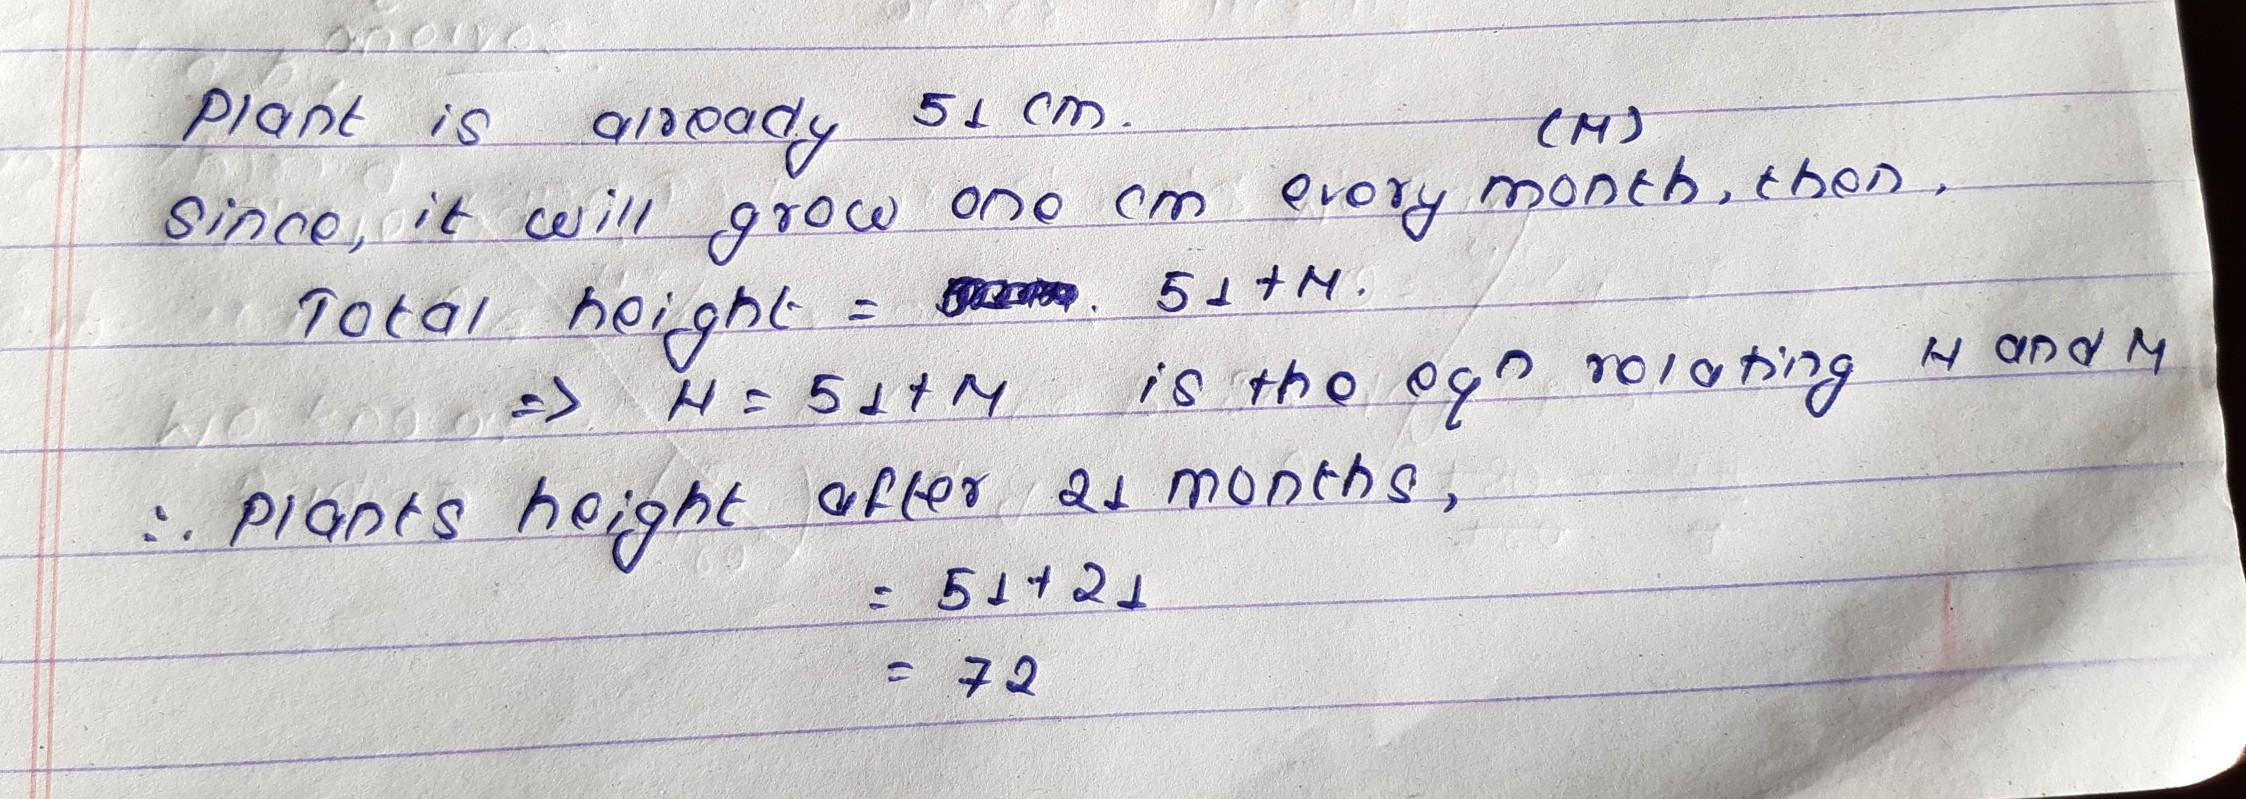 Plant is already 51 cm.
(M)
Since, it will grow one cm every month, then,
Total height = 51 + M.
=> H = 51 + M is the eqn relating H and M
∴ Plants height after 21 months,
= 51 + 21
= 72